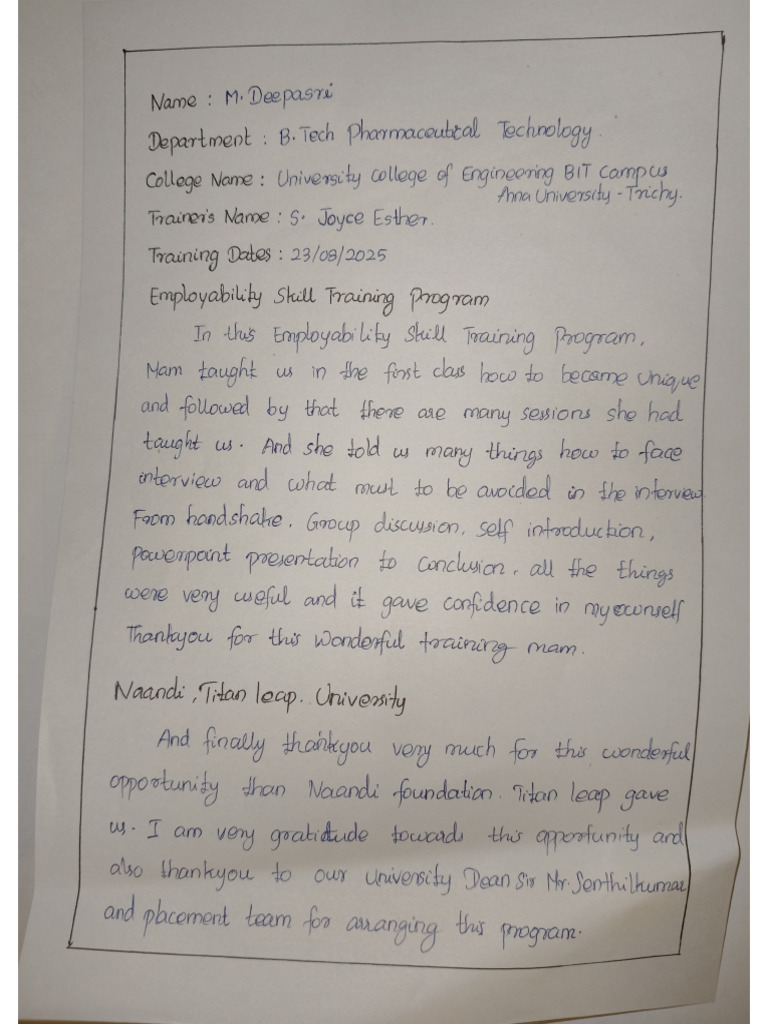 Name : M. Deepasri
Department : B.Tech Pharmaceutical Technology.
College Name : University College of Engineering BIT Campus
Anna University - Trichy.
Trainer's Name : S. Joyce Esther.
Training Dates : 23/08/2025
Employability Skill Training Program
In this Employability Skill Training Program,
Mam taught us in the first class how to became unique
and followed by that there are many sessions she had
taught us. And she told us many things how to face
interview and what must to be avoided in the interview
From handshake, Group discussion, self introduction,
Powerpoint presentation to conclusion, all the things
were very useful and it gave confidence in my
Thankyou for this wonderful training mam.
Naandi, Titan leap. University
And finally thankyou very much for this wonderful
opportunity than Naandi foundation. Titan leap gave
us. I am very gratitude towards this opportunity and
also thankyou to our University Dean Sir Mr. Senthilkumar
and placement team for arranging this program.